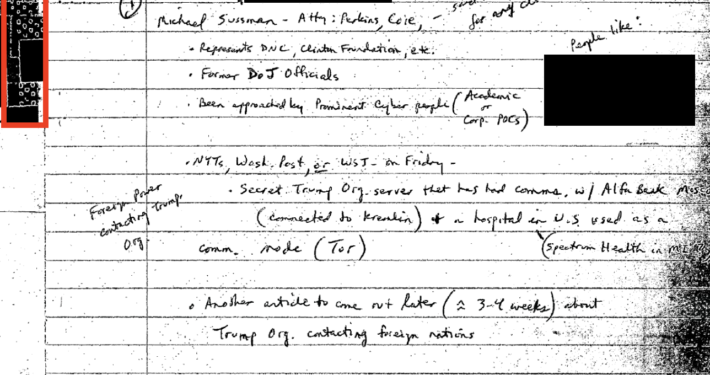 ①
Michael Sussman - Atty: Perkins, Coie, -
for any
People like:
• Represents DNC, Clinton Foundation, etc.
• Former DoJ Officials
• Been approached by Prominent Cyber people (Academic or Corp. POCs)
• NYTs, Wash. Post, or WSJ - on Friday -
• Secret Trump Org. server that has had comms. w/ Alfa Bank
Foreign Power contacting Trump Org
(connected to Kremlin) & a hospital in U.S. used as a
comm. node (Tor)
(Spectrum Health in
• Another article to come out later (≈ 3-4 weeks) about
Trump Org. contacting foreign nations